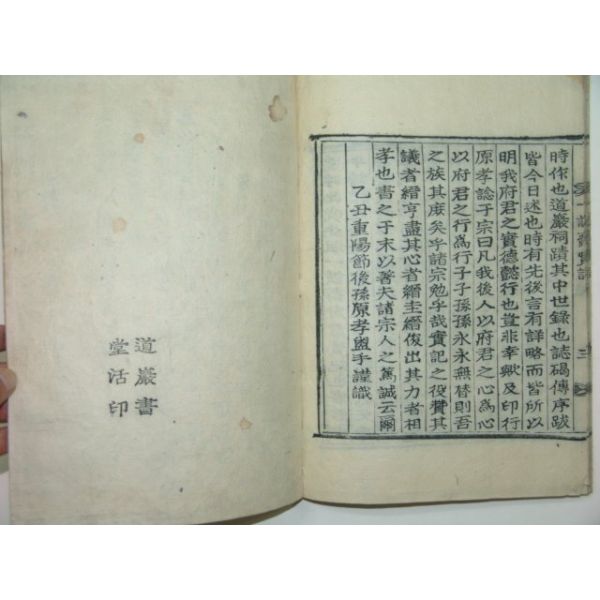 時作也道巖祠蹟其中世錄也誌碣傳序跋
皆今日述也時有先後言有詳略而皆所以
明我府君之實德懿行也豈非幸歟及印行
原孝諗于宗曰凡我後人以府君之心爲心
以府君之行爲行子子孫孫永永無替則吾
之族其庶矣乎諸宗勉乎哉實記之役贊其
議者縉亨盡其心者縉圭縉俊出其力者相
孝也書之于末以著夫諸宗人之篤誠云爾
乙丑重陽節後孫原孝盥手謹識
道巖書
堂活印